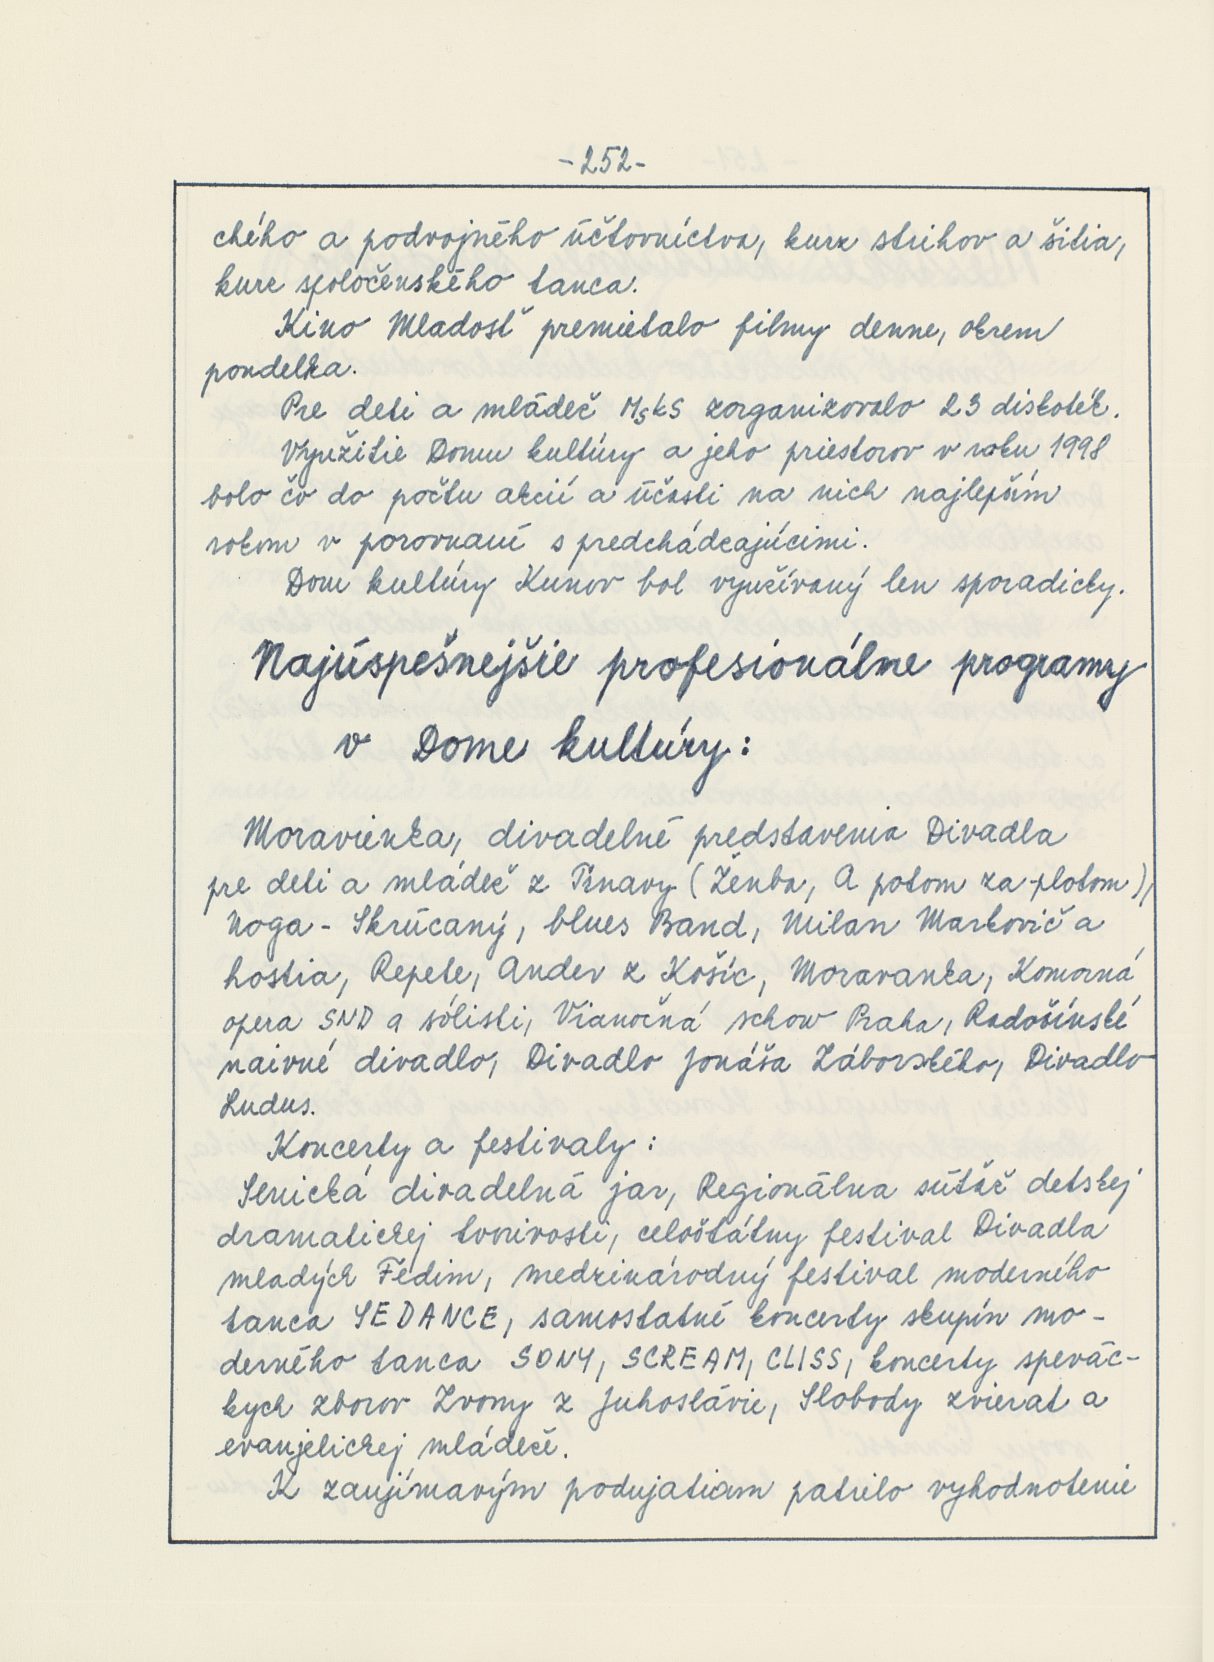 -252-
chého a podvojného účtovníctva, kurz strihov a šitia,
kurz spoločenského tanca.
Kino Mladosť premietalo filmy denne, okrem
pondelka.
Pre deti a mládež MsKS zorganizovalo 23 diskoték.
Využitie Domu kultúry a jeho priestorov v roku 1998
bolo čo do počtu akcií a účasti na nich najlepším
rokom v porovnaní s predchádzajúcimi.
Dom kultúry Kunov bol využívaný len sporadicky.
Najúspešnejšie profesionálne programy
v Dome kultúry:
Moravienka, divadelné predstavenia Divadla
pre deti a mládež z Trnavy (Ženba, A potom za plotom),
Noga - Skrúcaný, blues Band, Milan Markovič a
hostia, Repete,Ander z Košíc, Moravanka, Komorná
opera SND a sólisti, Vianočná schow Praha, Radošinské
naivné divadlo, Divadlo Jonáša Záborského, Divadlo
Ludus.
Koncerty a festivaly:
Senická divadelná jar, Regionálna súťaž detskej
dramatickej tvorivosti, celoštátny festival Divadla
mladých Fedim, medzinárodný festival moderného
tanca SEDANCE, samostatné koncerty skupín mo-
derného tanca SONY, SCREAM, CLISS, koncerty spevác-
kych zborov Zvony z Juhoslávie, Slobody zvierat a
evanjelickej mládeže.
K zaujímavým podujatiam patrilo vyhodnotenie